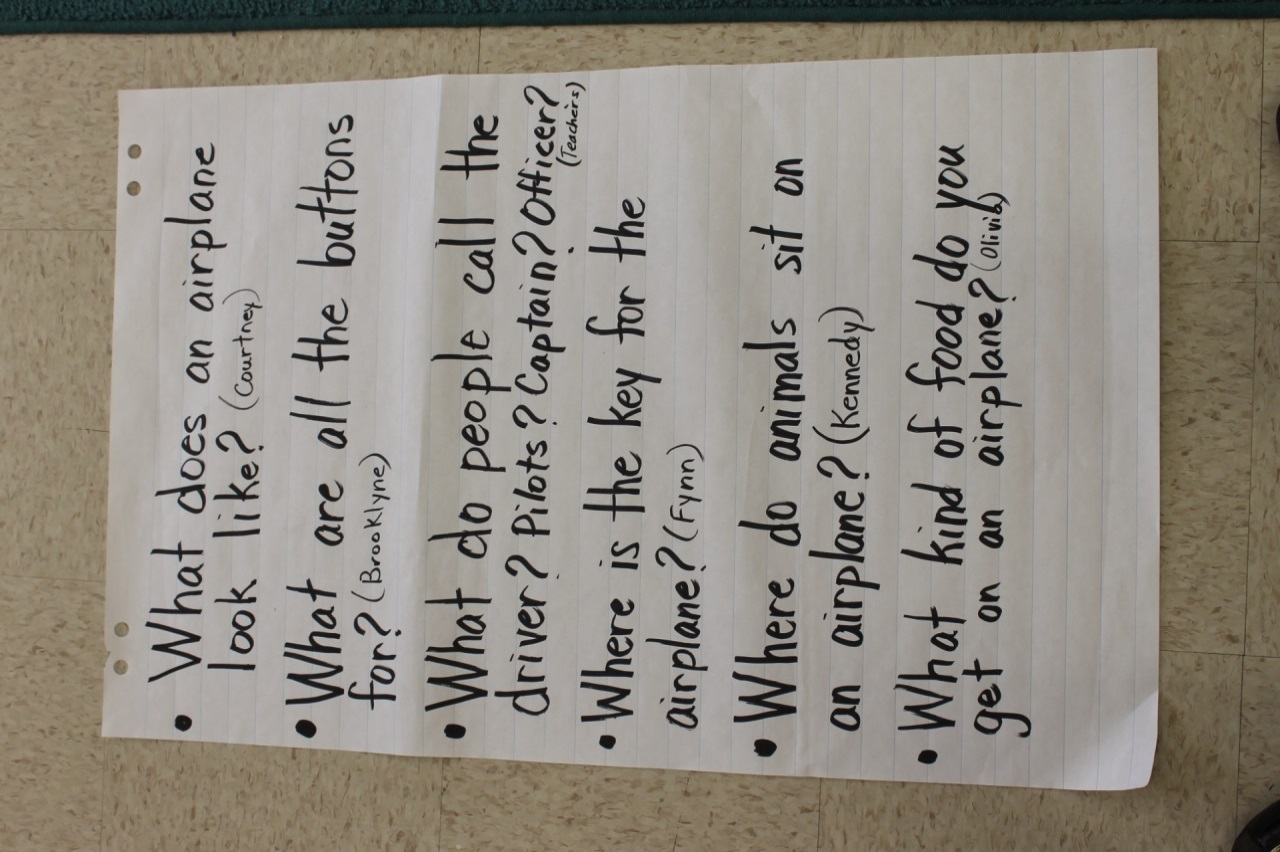 • What does an airplane
look like? (Courtney)
• What are all the buttons
for? (Brooklyne)
• What do people call the
driver? Pilots? Captain? Officer?
(Teachers)
• Where is the key for the
airplane? (Fynn)
• Where do animals sit on
an airplane? (Kennedy)
• What kind of food do you
get on an airplane? (Olivia)